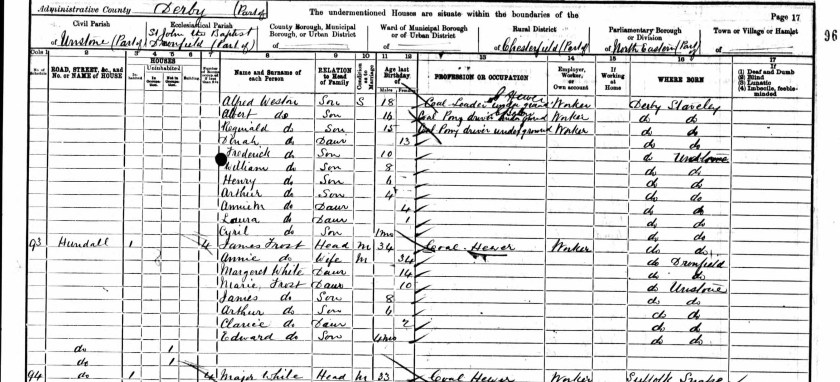 Administrative County Derby (Part of) The undermentioned Houses are situate within the boundaries of the Page 17
Civil Parish Ecclesiastical Parish County Borough, Municipal Borough, or Urban District Ward of Municipal Borough or of Urban District Rural District Parliamentary Borough or Division Town or Village or Hamlet
of Unstone (Part of) St John the Baptist Dronfield (Part of) of of of Chesterfield (Part of) of North Eastern (Part) of
96
Cols 1 2 3 4 5 6 7 8 9 10 11 12 13 14 15 16 17
ROAD, STREET, &c., and No. or NAME of HOUSE HOUSES Uninhabited Building Name and Surname of each Person RELATION to Head of Family Condition as to Marriage Age last Birthday of Males Females PROFESSION OR OCCUPATION Employer, Worker, or Own account If Working at Home WHERE BORN (1) Deaf and Dumb (2) Blind (3) Lunatic (4) Imbecile, feeble-minded
Alfred Weston Son S 18 underground Worker Derby Staveley
Albert do Son 16 Coal Pony driver underground Worker do do
Reginald do Son 15 Coal Pony driver underground Worker do do
Dinah do Daur 13 do do
Frederick do Son 10 do Unstone
William do Son 8 do do
Henry do Son 6 do do
Arthur do Son 4 do do
Annie M do Daur 4 do do
Laura do Daur 1 do do
Cyril do Son 1mo do do
93 Hundall 1 4 James Frost Head M 34 Coal Hewer Worker do do
Annie do Wife M 34 do Dronfield
Margaret White Daur 14 do do
Marie Frost Daur 10 do Unstone
James do Son 8 do do
Arthur do Son 6 do do
Clarice do Daur 2 do do
Edward do Son 4mo do do
do 1
do 1
94 do 1 4 Major White Head M 33 Coal Hewer Worker Suffolk Snape